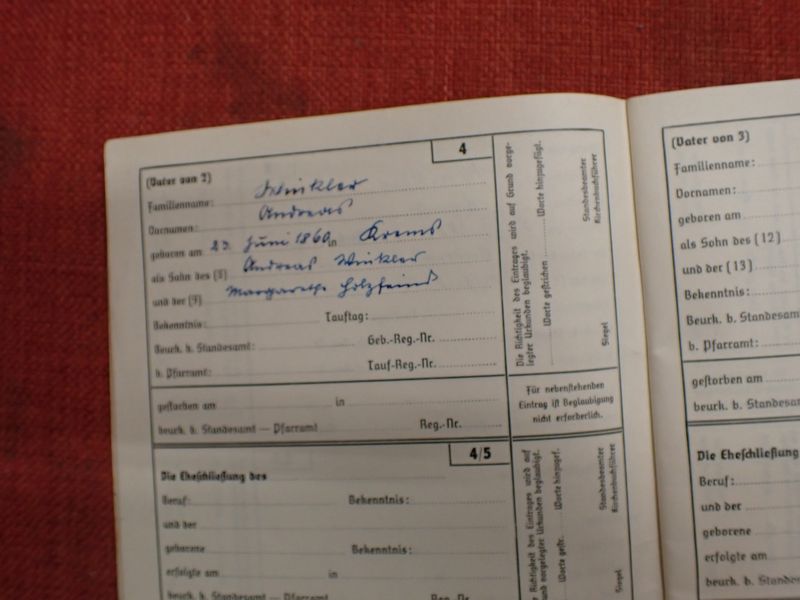 4
(Vater von 2)
Familienname: Winkler
Vornamen: Andreas
geboren am 23. Juni 1860 in Krems
als Sohn des (8) Andreas Winkler
und der (9) Margarethe Holzfeind
Bekenntnis: Tauftag:
Beurk. b. Standesamt: Geb.-Reg.-Nr.
b. Pfarramt: Tauf-Reg.-Nr.
gestorben am in
beurk. b. Standesamt — Pfarramt Reg.-Nr.
Die Richtigkeit des Eintrages wird auf Grund vorge-
legter Urkunden beglaubigt.
Worte gestrichen Worte hinzugefügt.
Siegel
Standesbeamter
Kirchenbuchführer
Für nebenstehenden
Eintrag ist Beglaubigung
nicht erforderlich.
4/5
Die Eheschließung des
Beruf: Bekenntnis:
und der
geborene Bekenntnis:
erfolgte am in
beurk. b. Standesamt — Pfarramt Reg.-Nr.
Die Richtigkeit des Eintrages wird auf
Grund vorgelegter Urkunden beglaubigt.
Worte gestr. Worte hinzugef.
Siegel
Standesbeamter
Kirchenbuchführer
(Vater von 3)
Familienname:
Vornamen:
geboren am
als Sohn des (12)
und der (13)
Bekenntnis:
Beurk. b. Standesam
b. Pfarramt:
gestorben am
beurk. b. Standesa
Die Eheschließung
Beruf:
und der
geborene
erfolgte am
beurk. b. Stand